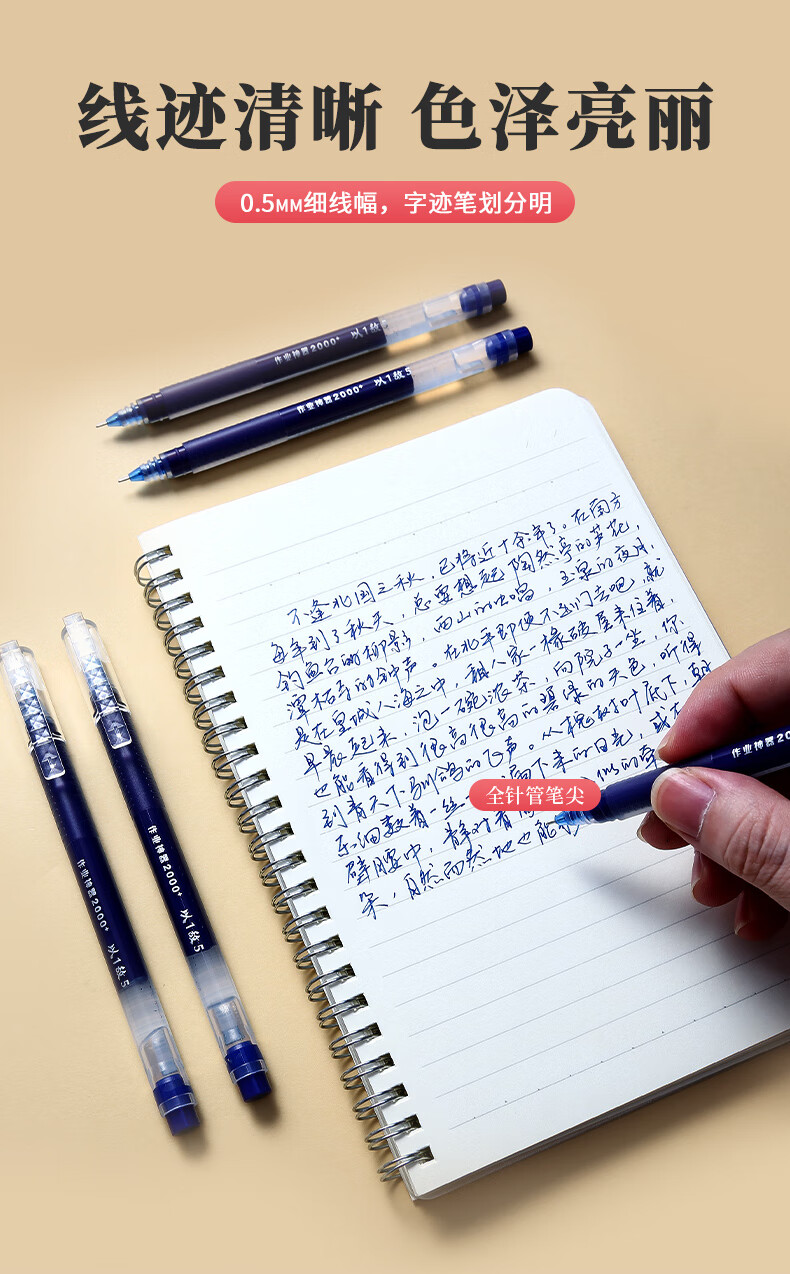 线迹清晰 色泽亮丽
0.5MM细线幅，字迹笔划分明
作业神器2000+ 以1敌5
作业神器2000+ 以1敌5
不逢北国之秋，已将近十余年了。在南方
每年到了秋天，总要想起陶然亭的芦花，
钓鱼台的柳影，西山的虫唱，玉泉的夜月，
潭柘寺的钟声。在北平即使不出门去吧，就
是在皇城人海之中，租人家一椽破屋来住着，
早晨起来，泡一碗浓茶，向院子一坐，你
也能看得到很高很高的碧绿的天色，听得
到青天下驯鸽的飞声。从槐树叶底下，朝
东细数着一丝 漏下来的日光，或在
似的牵
壁腰中，静对着
朵，自然而然地也能
全针管笔尖
作业神器20
作业神器2000+ 以1敌5
作业神器2000+ 以1敌5